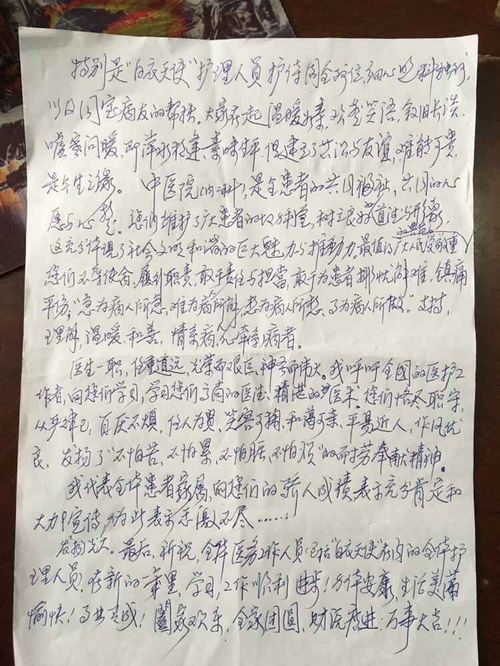 特别是"白衣天使"护理人员 护侍周全 细心
以及同室病友的帮扶, 大家在一起 温暖 欢声笑语, 叙旧长谈.
嘘寒问暖, 即萍水相逢, 素昧生平, 但建立了共识与友谊, 难能可贵,
是今生之缘。 中医院 内科, 是全患者的共同福祉, 共同的心
愿与心 您们维护了广大患者的 树立良好 道德与形象,
这充分体现了社会文明和谐的巨大魅力与推动力, 最值得广大人民 尊重
您们不辱使命, 履行职责, 敢于责任与担当, 敢于为患者排忧解难, 镇痛
平伤, "急为病人所急, 难为病人所难, 想为病人所想, 为病人所 ". 支持,
理解, 温暖和善, 情系病人心牵病者。
医生一职, 任重道远, 光荣而艰巨, 神圣而伟大. 我呼吁全国的医护工
作者, 向您们学习, 学习您们高尚的医德, 精湛的医术. 您们恪尽职守,
从严律己, 百厌不烦, 任人为贤, 笑容可掬, 和蔼可亲, 平易近人, 作风优
良. 发扬了"不怕苦、不怕累、不怕脏、不怕 "的 劳奉献精神.
我代表全体患者家属, 向您们的骄人成绩表示充分肯定和
大力宣传, 为此表示感激不尽……
发扬光大. 最后, 祝 全体医务工作人员 "白衣天使"在内的全体护
理人员, 在新的 里, 学习, 工作顺利 进步! 身体安康, 生活美满
愉快! 事业有成! 阖家欢乐, 全家团圆, 财源广进, 万事大吉!!!